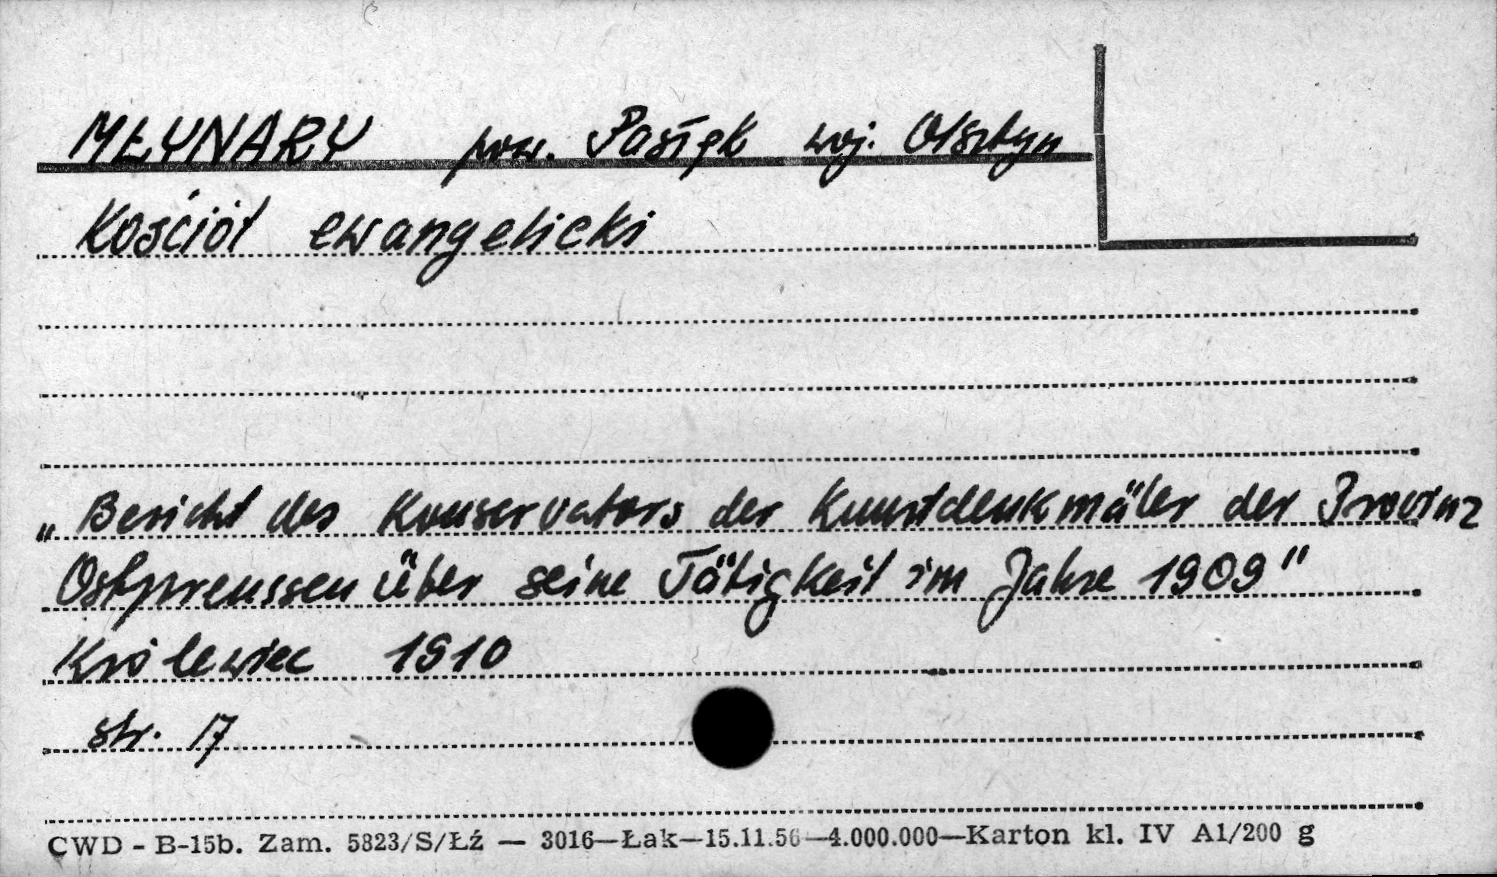 MŁYNARY pow. Pasłęk woj. Olsztyn
Kościół ewangelicki
„Bericht des Konservators der Kunstdenkmäler der Provinz
Ostpreussen über seine Tätigkeit im Jahre 1909"
Królewiec 1910
str. 17
CWD - B-15b. Zam. 5823/S/Łź — 3016—Łak—15.11.56—4.000.000—Karton kl. IV A1/200 g